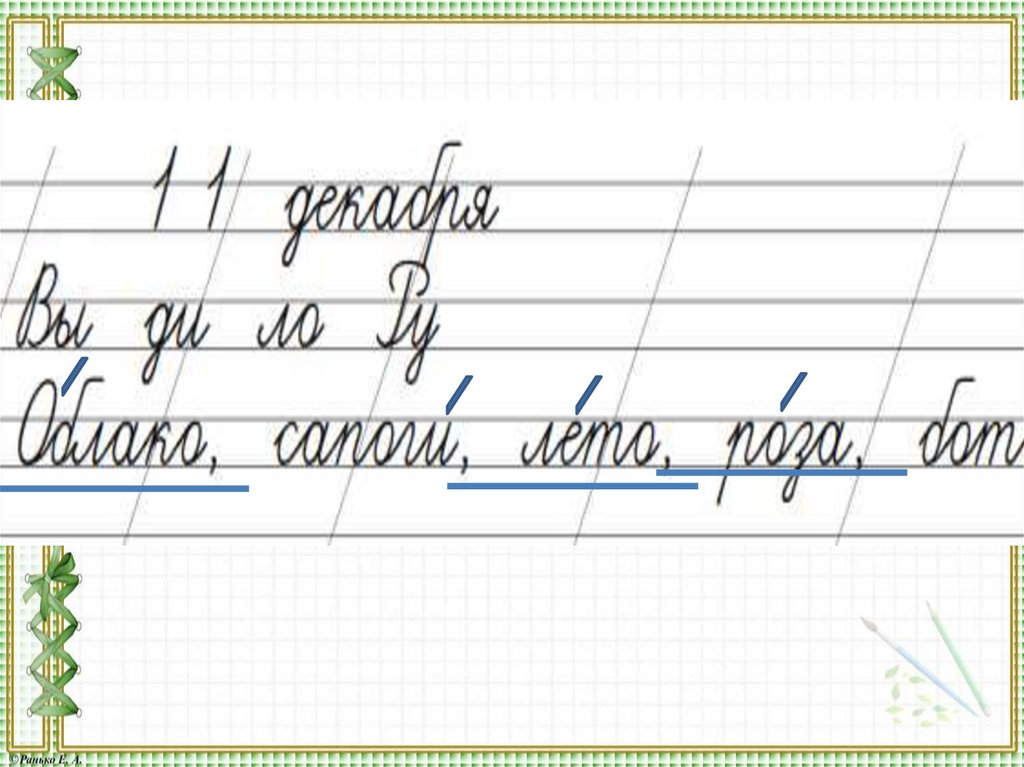 11 декабря
Вы ди ло Ру
Облако, сапоги, лето, роза, бот
©Ранько Е. А.